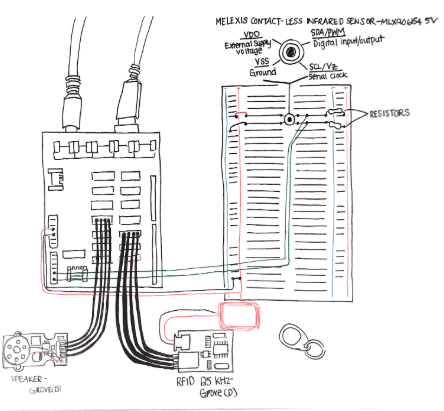 MELEXIS CONTACT-LESS INFRARED SENSOR-MLX90614 5V
VDD
External supply
voltage
SDA/PWM
Digital input/output
VSS
Ground
SCL/VZ
Serial clock
RESISTORS
SPEAKER-
GROVE(D)
RFID 125 KHZ-
Grove(D)